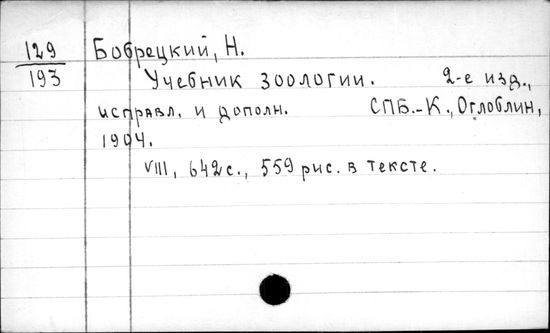 129
193
Бобрецкий, Н.
Учебник зоологии. 2-е изд.,
исправл. и дополн. СПБ.-К., Оглоблин,
1904.
VIII, 642с., 559 рис. в тексте.